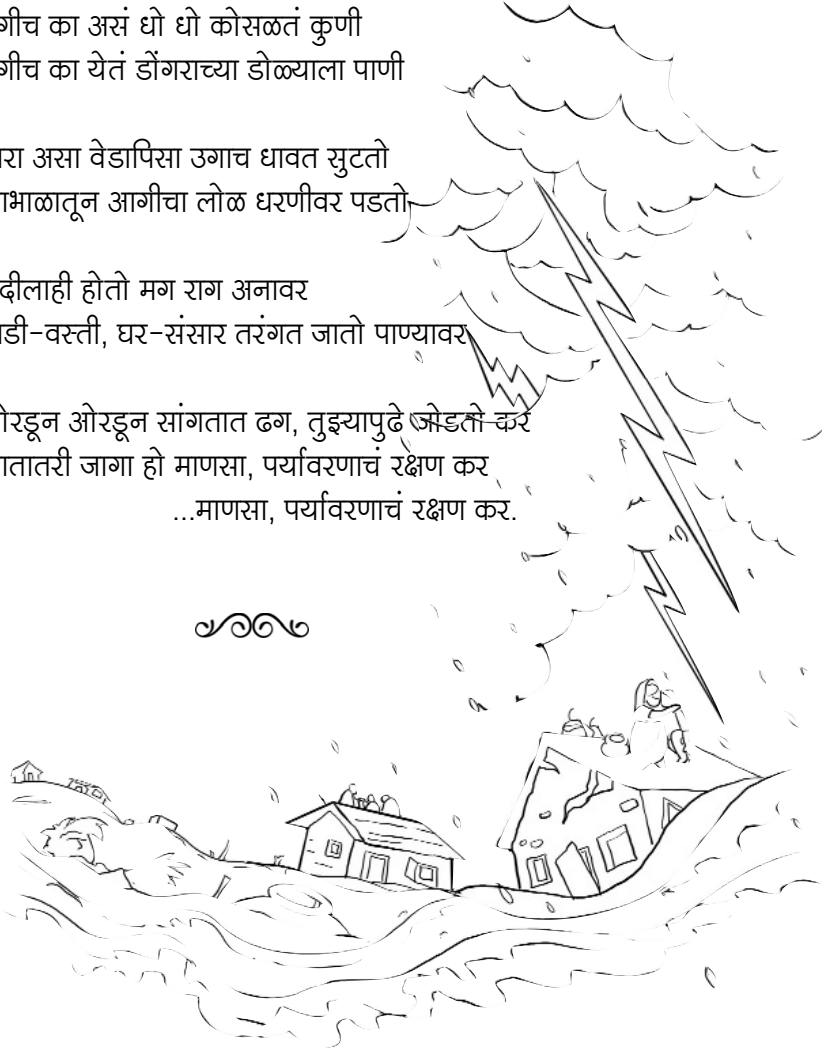 गीच का असं धो धो कोसळतं कुणी
गीच का येतं डोंगराच्या डोळ्याला पाणी
रा असा वेडापिसा उगाच धावत सुटतो
भाळातून आगीचा लोळ धरणीवर पडतो
दीलाही होतो मग राग अनावर
डी-वस्ती, घर-संसार तरंगत जातो पाण्यावर
रडून ओरडून सांगतात ढग, तुझ्यापुढे जोडतो कर
तातरी जागा हो माणसा, पर्यावरणाचं रक्षण कर
...माणसा, पर्यावरणाचं रक्षण कर.